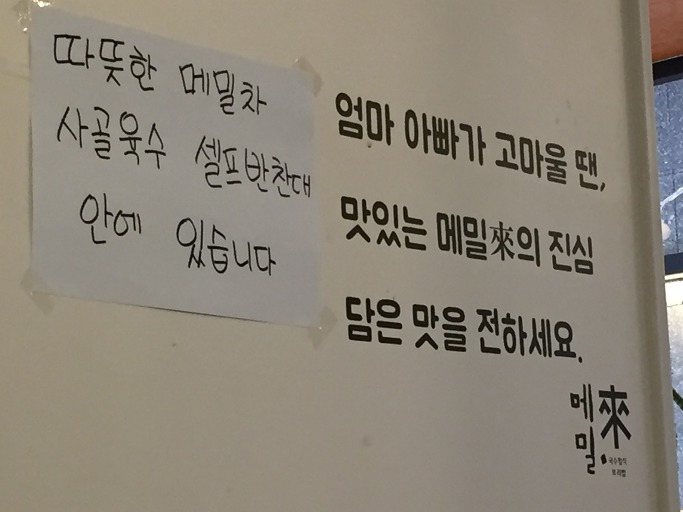 따뜻한 메밀차
사골육수 셀프반찬대
안에 있습니다
엄마 아빠가 고마울 땐,
맛있는 메밀來의 진심
담은 맛을 전하세요.
메밀來